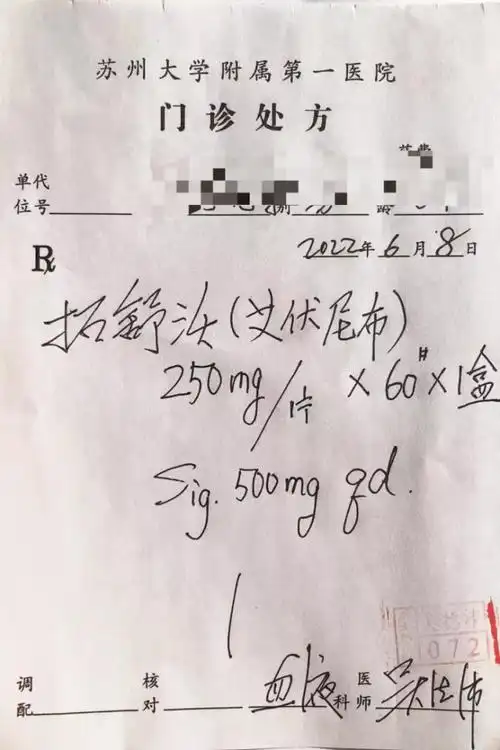 苏州大学附属第一医院
门诊处方
单代
位号
2022年6月8日
R
拓舒沃(艾伏尼布)
250mg/片 × 60# × 1盒
Sig. 500mg qd.
072
调配 核对 血液科 医师